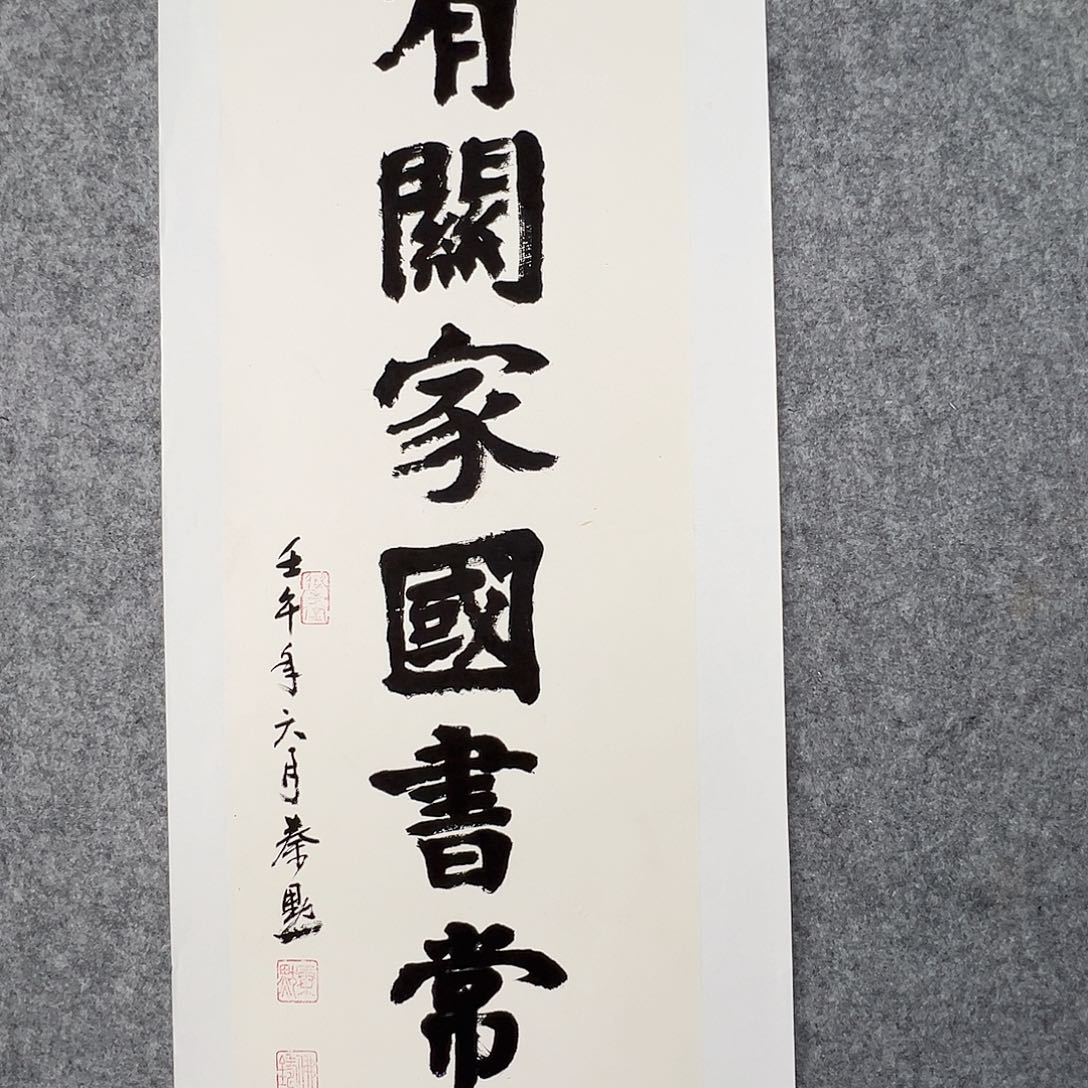 有關家國書常
壬午年六月秦㸃